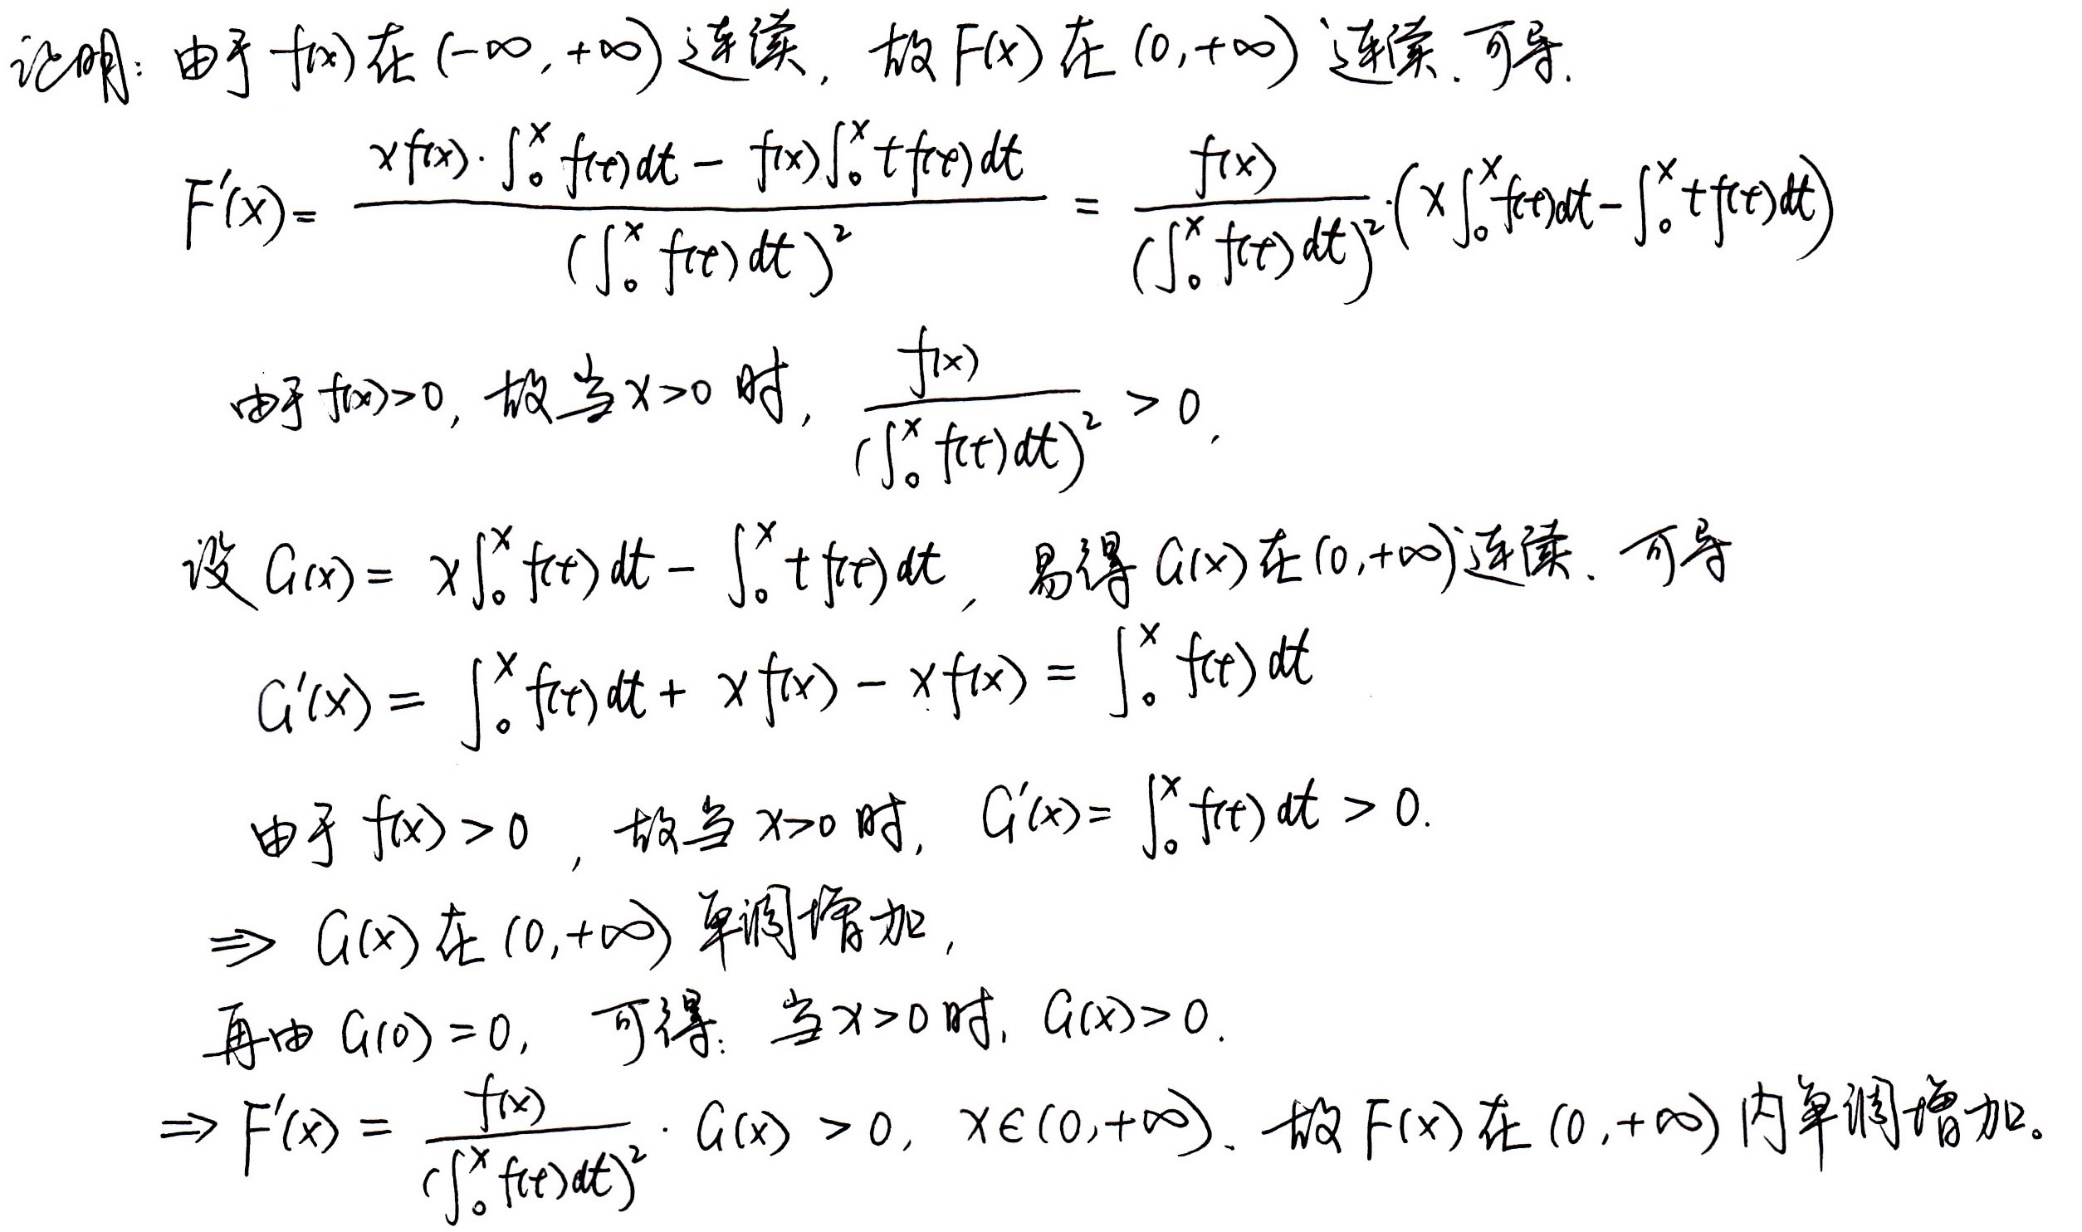 证明: 由于 f(x) 在 (-∞, +∞) 连续, 故 F(x) 在 (0, +∞) 连续. 可导.
F'(x) = \frac{x f(x) \cdot \int_0^x f(t) dt - f(x) \int_0^x t f(t) dt}{(\int_0^x f(t) dt)^2} = \frac{f(x)}{(\int_0^x f(t) dt)^2} \cdot (x \int_0^x f(t) dt - \int_0^x t f(t) dt)
由于 f(x) > 0, 故当 x > 0 时, \frac{f(x)}{(\int_0^x f(t) dt)^2} > 0,
设 G(x) = x \int_0^x f(t) dt - \int_0^x t f(t) dt, 易得 G(x) 在 (0, +∞) 连续. 可导
G'(x) = \int_0^x f(t) dt + x f(x) - x f(x) = \int_0^x f(t) dt
由于 f(x) > 0, 故当 x > 0 时, G'(x) = \int_0^x f(t) dt > 0.
⇒ G(x) 在 (0, +∞) 单调增加,
再由 G(0) = 0, 可得: 当 x > 0 时, G(x) > 0.
⇒ F'(x) = \frac{f(x)}{(\int_0^x f(t) dt)^2} \cdot G(x) > 0, x ∈ (0, +∞). 故 F(x) 在 (0, +∞) 内单调增加。